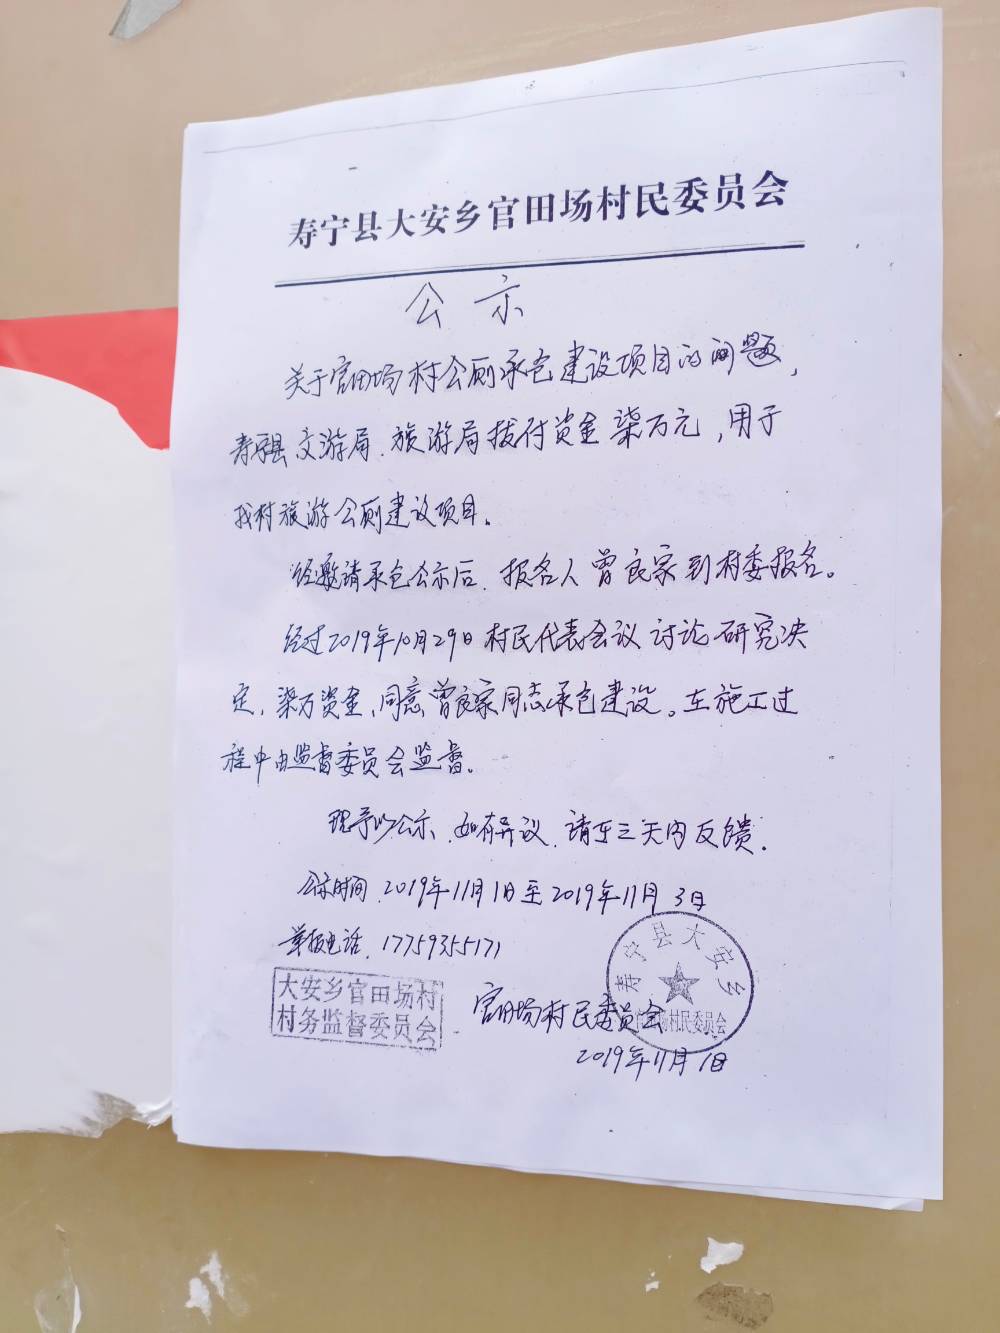 寿宁县大安乡官田场村民委员会
公示
关于官田场村公厕承包建设项目的问题，
寿宁县文游局、旅游局拨付资金柒万元，用于
我村旅游公厕建设项目。
经邀请承包公示后，报名人曾良家到村委报名。
经过2019年10月29日村民代表会议讨论研究决
定，柒万资金，同意曾良家同志承包建设。在施工过
程中由监督委员会监督。
现予以公示，如有异议，请在三天内反馈。
公示时间，2019年11月1日至2019年11月3日
举报电话，17759355171
大安乡官田场村
村务监督委员会
寿宁县大安乡
官田场村民委员会
官田场村民委员会
2019年11月1日